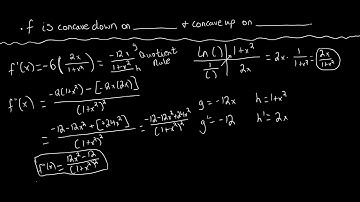 . f is concave down on ________ & concave up on ________.
f'(x)=-6(2x/1+x²) = -12x/1+x² g h Quotient Rule
ln() | 1+x²
1/() | 2x
= 2x · 1/1+x² = (2x/1+x²)
f"(x) = -2(1+x²) - [-2x(2x)] / (1+x²)²
= -12-12x² + [+24x²] / (1+x²)² = -12-12x²+24x² / (1+x²)²
g = -12x h = 1+x²
g' = -12 h' = 2x
f"(x) = 12x²-12 / (1+x²)²